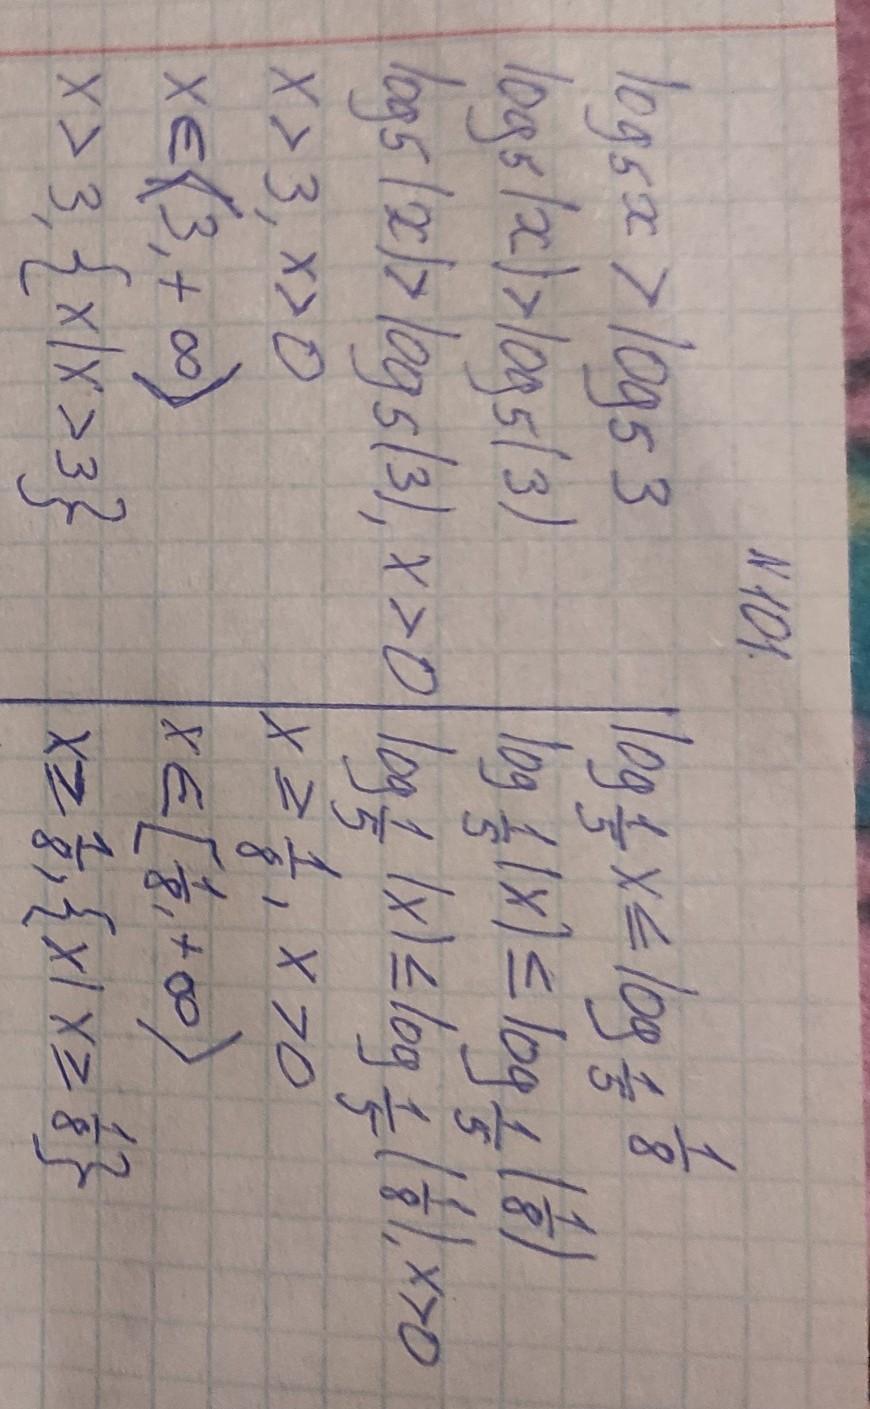 N 101.
log 5 x > log 5 3
log 5 (x) > log 5 (3)
log 5 (x) > log 5 (3), x > 0
x > 3, x > 0
x ∈ ⟨3, + ∞⟩
x > 3, {x | x > 3}
log 1/5 x ≤ log 1/5 1/8
log 1/5 (x) ≤ log 1/5 (1/8)
log 1/5 (x) ≤ log 1/5 (1/8), x > 0
x ≥ 1/8, x > 0
x ∈ [1/8, + ∞⟩
x ≥ 1/8, {x | x ≥ 1/8}